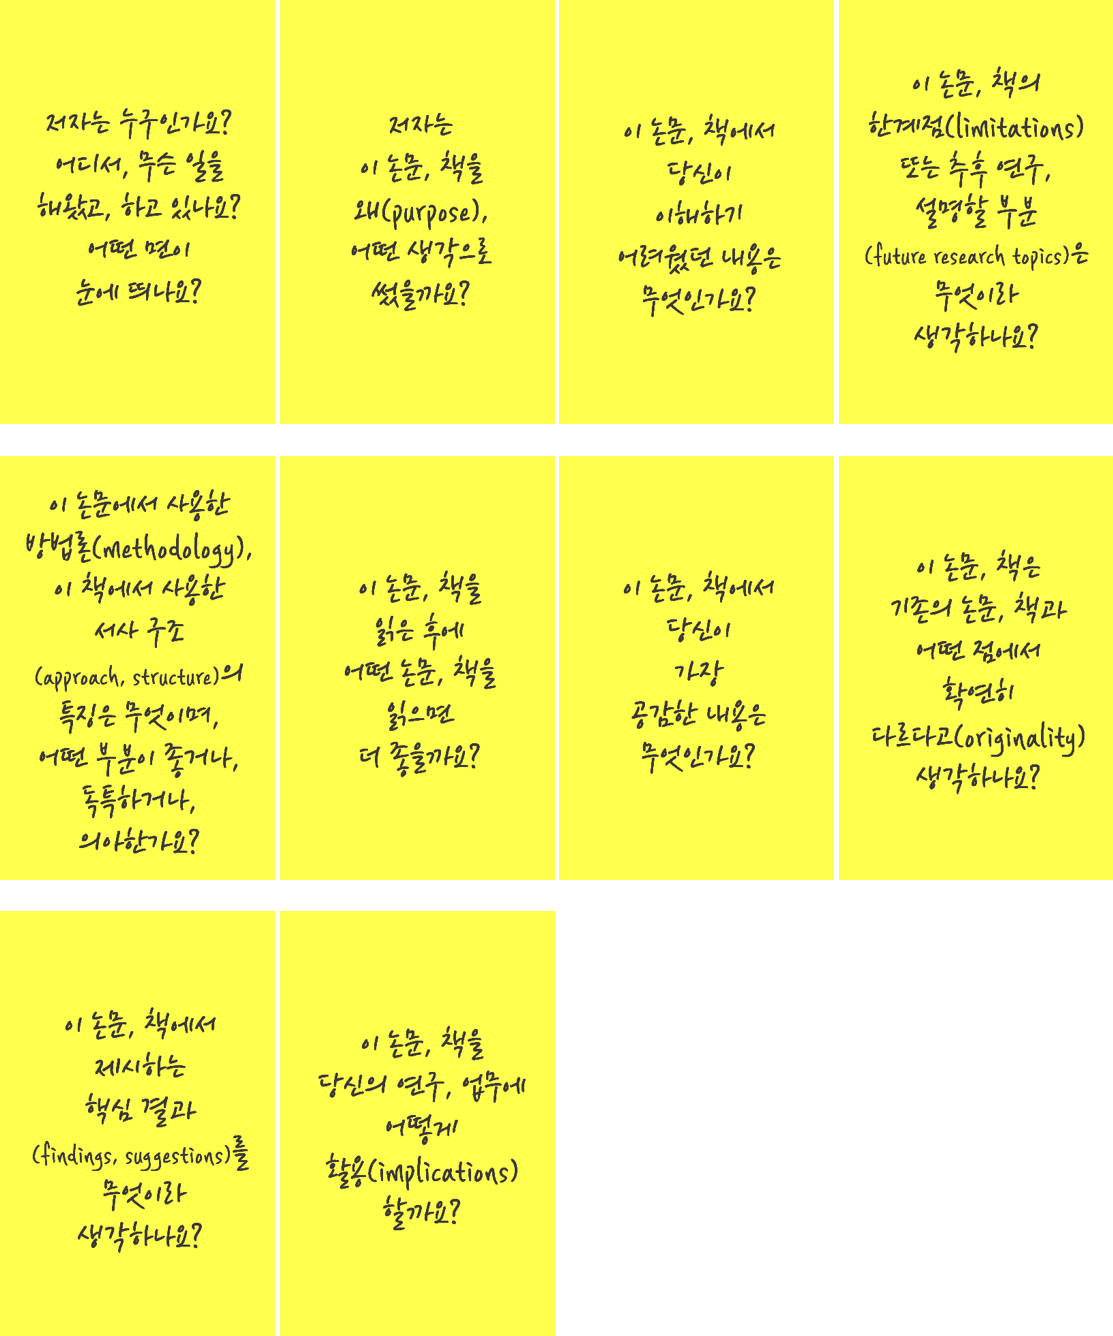 저자는 누구인가요?
어디서, 무슨 일을
해왔고, 하고 있나요?
어떤 면이
눈에 띄나요?
저자는
이 논문, 책을
왜(purpose),
어떤 생각으로
썼을까요?
이 논문, 책에서
당신이
이해하기
어려웠던 내용은
무엇인가요?
이 논문, 책의
한계점(limitations)
또는 추후 연구,
설명할 부분
(future research topics)은
무엇이라
생각하나요?
이 논문에서 사용한
방법론(methodology),
이 책에서 사용한
서사 구조
(approach, structure)의
특징은 무엇이며,
어떤 부분이 좋거나,
독특하거나,
의아한가요?
이 논문, 책을
읽은 후에
어떤 논문, 책을
읽으면
더 좋을까요?
이 논문, 책에서
당신이
가장
공감한 내용은
무엇인가요?
이 논문, 책은
기존의 논문, 책과
어떤 점에서
확연히
다르다고(originality)
생각하나요?
이 논문, 책에서
제시하는
핵심 결과
(findings, suggestions)를
무엇이라
생각하나요?
이 논문, 책을
당신의 연구, 업무에
어떻게
활용(implications)
할까요?